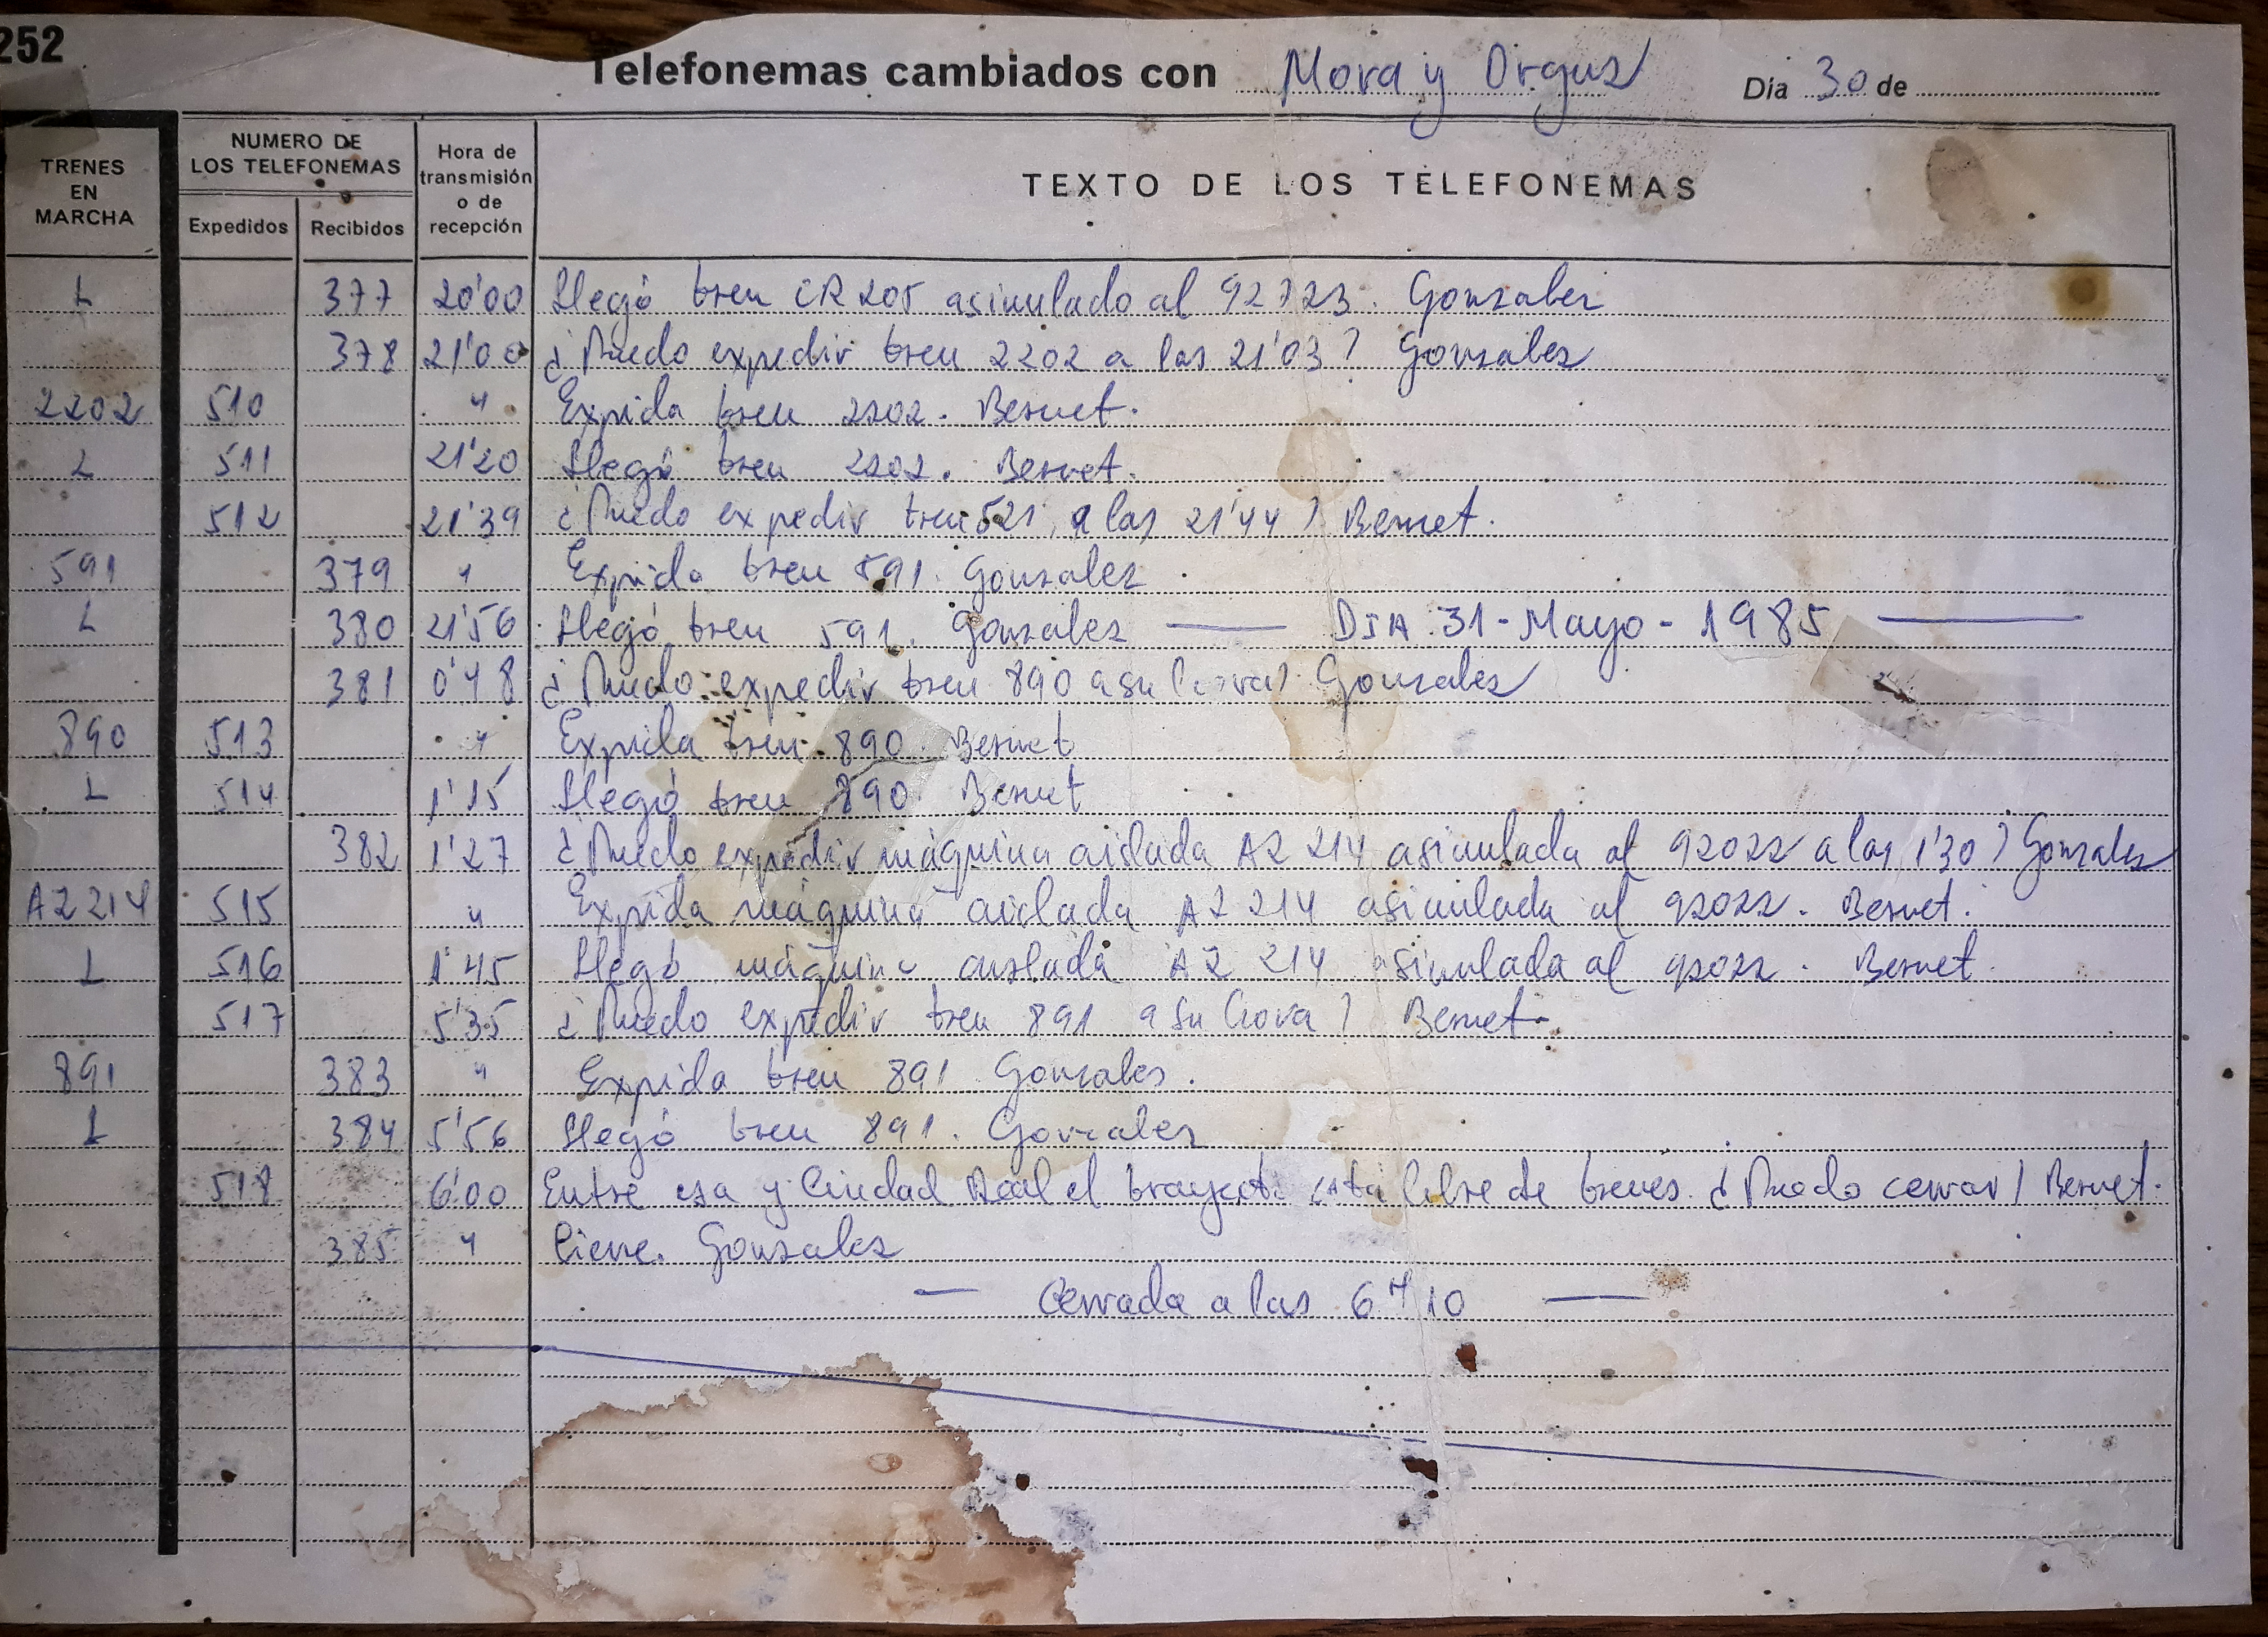 252
Telefonemas cambiados con Mora y Orgaz Dia 30 de
TRENES EN MARCHA
NUMERO DE LOS TELEFONEMAS
Expedidos Recibidos
Hora de transmisión o de recepción
TEXTO DE LOS TELEFONEMAS
L 377 20'00 Llegó tren CR 205 asimulado al 92723. Gonzalez
378 21'00 ¿Puedo expedir tren 2202 a las 21'03? Gonzalez
2202 510 " Expida tren 2202. Bernet.
L 511 21'20 Llegó tren 2202. Bernet.
512 21'39 ¿Puedo expedir tren 521 a las 21'44? Bernet.
591 379 " Expida tren 591. Gonzalez
L 380 21'56 Llegó tren 591. Gonzalez — DIA 31 - Mayo - 1985 —
381 0'48 ¿Puedo expedir tren 890 a su hora? Gonzalez
890 513 " Expida tren 890. Bernet
L 514 1'15 Llegó tren 890. Bernet
382 1'27 ¿Puedo expedir máquina aislada AZ 214 asimulada al 92022 a las 1'30? Gonzalez
AZ 214 515 " Expida máquina aislada AZ 214 asimulada al 92022. Bernet.
L 516 1'45 Llegó máquina aislada AZ 214 asimulada al 92022. Bernet.
517 5'35 ¿Puedo expedir tren 891 a su hora? Bernet.
891 383 " Expida tren 891 Gonzalez.
L 384 5'56 Llegó tren 891. Gonzalez
518 6'00 Entre esa y Ciudad Real el trayecto está libre de trenes. ¿Puedo cerrar? Bernet.
385 " Cierre. Gonzalez
— Cerrada a las 6 H 10 —